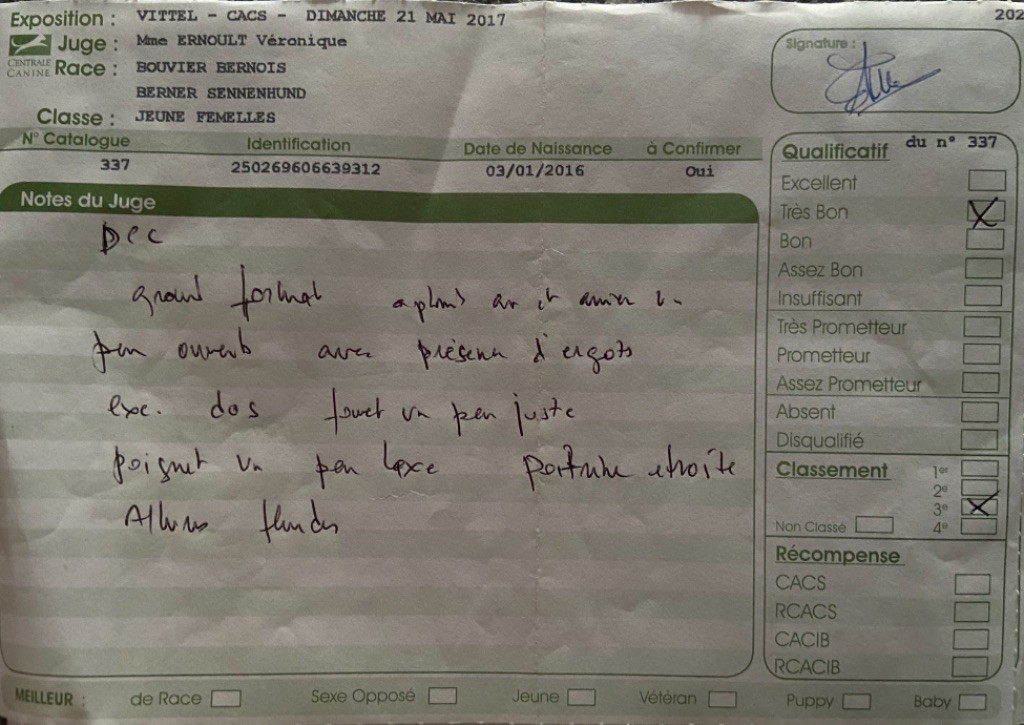 Exposition : VITTEL - CACS - DIMANCHE 21 MAI 2017
202
CENTRALE CANINE
Juge : Mme ERNOULT Véronique
Race : BOUVIER BERNOIS
BERNER SENNENHUND
Classe : JEUNE FEMELLES
Signature :
N° Catalogue Identification Date de Naissance à Confirmer
337 250269606639312 03/01/2016 Oui
Notes du Juge
Dec
grand format aplomb av et arrier un
peu ouvert avec présence d'ergots
exc. dos fouet un peu juste
poignet un peu laxe poitrine etroite
Allures fluides
Qualificatif du n° 337
Excellent
Très Bon X
Bon
Assez Bon
Insuffisant
Très Prometteur
Prometteur
Assez Prometteur
Absent
Disqualifié
Classement 1er
2e
3e X
Non Classé 4e
Récompense
CACS
RCACS
CACIB
RCACIB
MEILLEUR : de Race Sexe Opposé Jeune Vétéran Puppy Baby